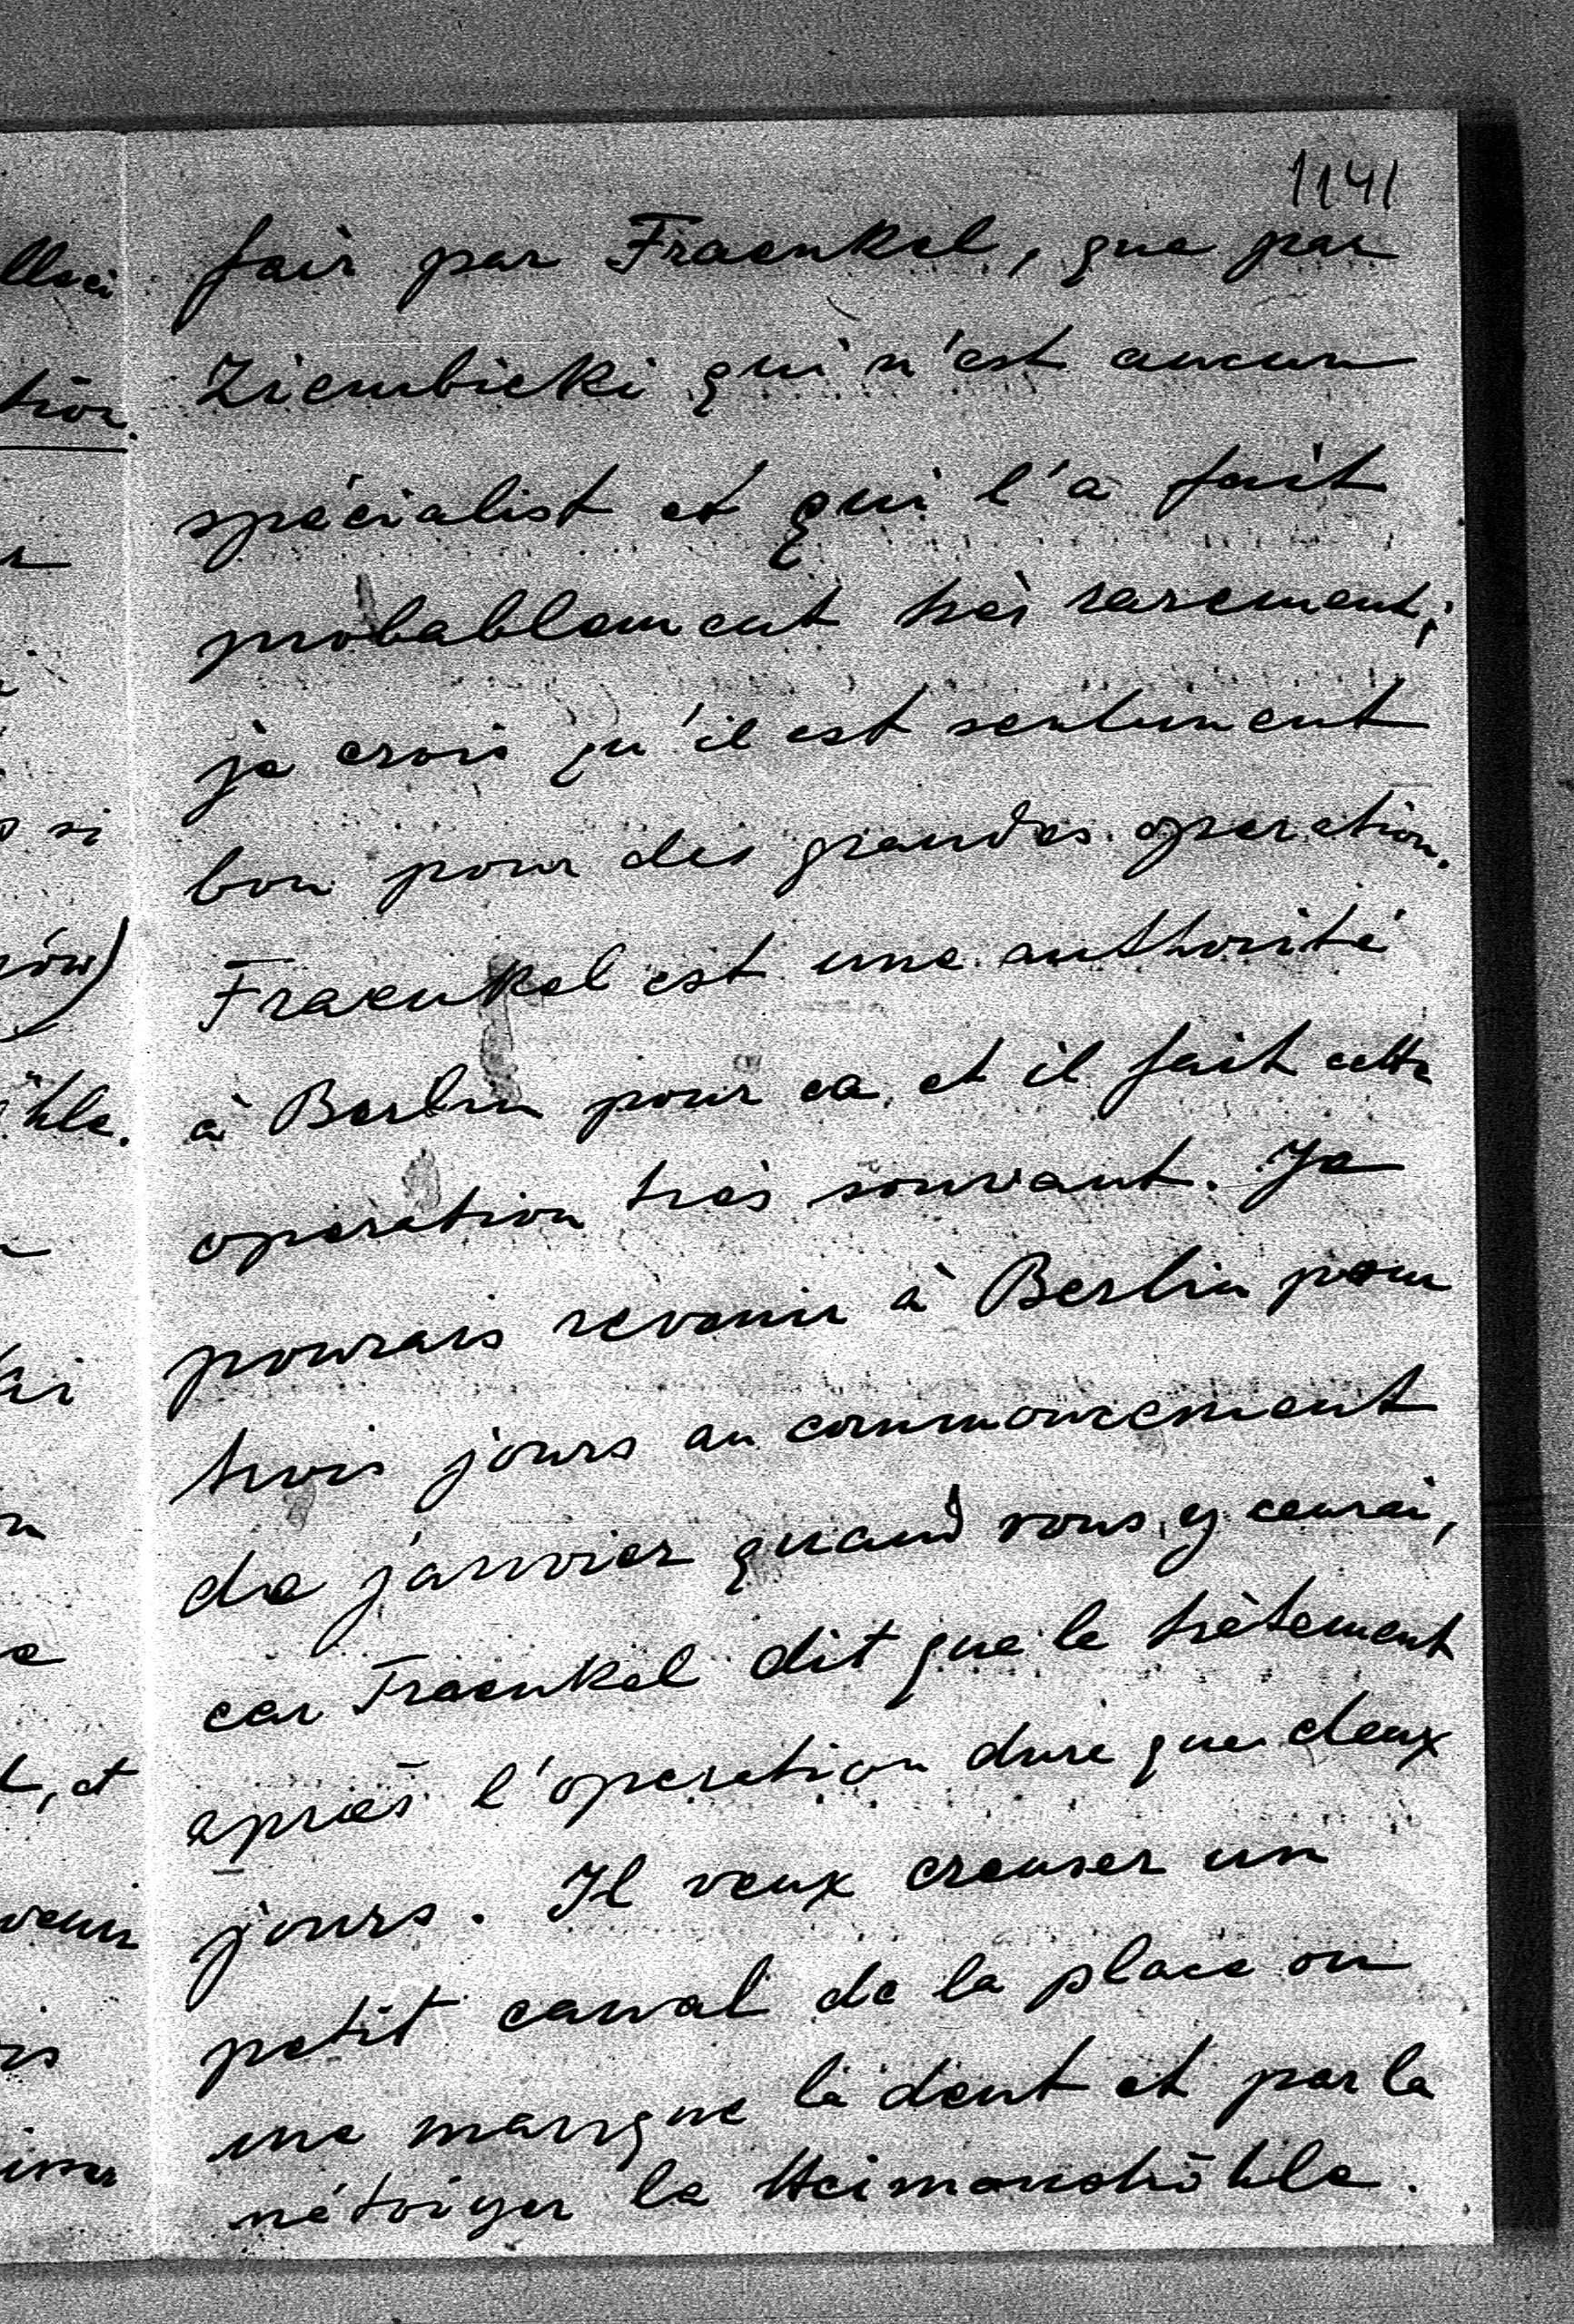 1141
fair par Fraenkel, que par
Ziembicki qui n'est aucun
spécialist et qui l'a fait
probablement très rarement;
je crois qu'il est seulument
bon pour des grandes operation.
Fraenkel est une authorité
à Berlin pour ca, et il fait cette
operation très souvant. Je
pourais revenir à Berlin pour
trois jours au commencement
de janvier quand vous y
car Fraenkel dit que le trètement
après l'operation dure que deux
jours. Il veux creuser un
petit canal de la place ou
me manque la dent et par la
nétoiyer la